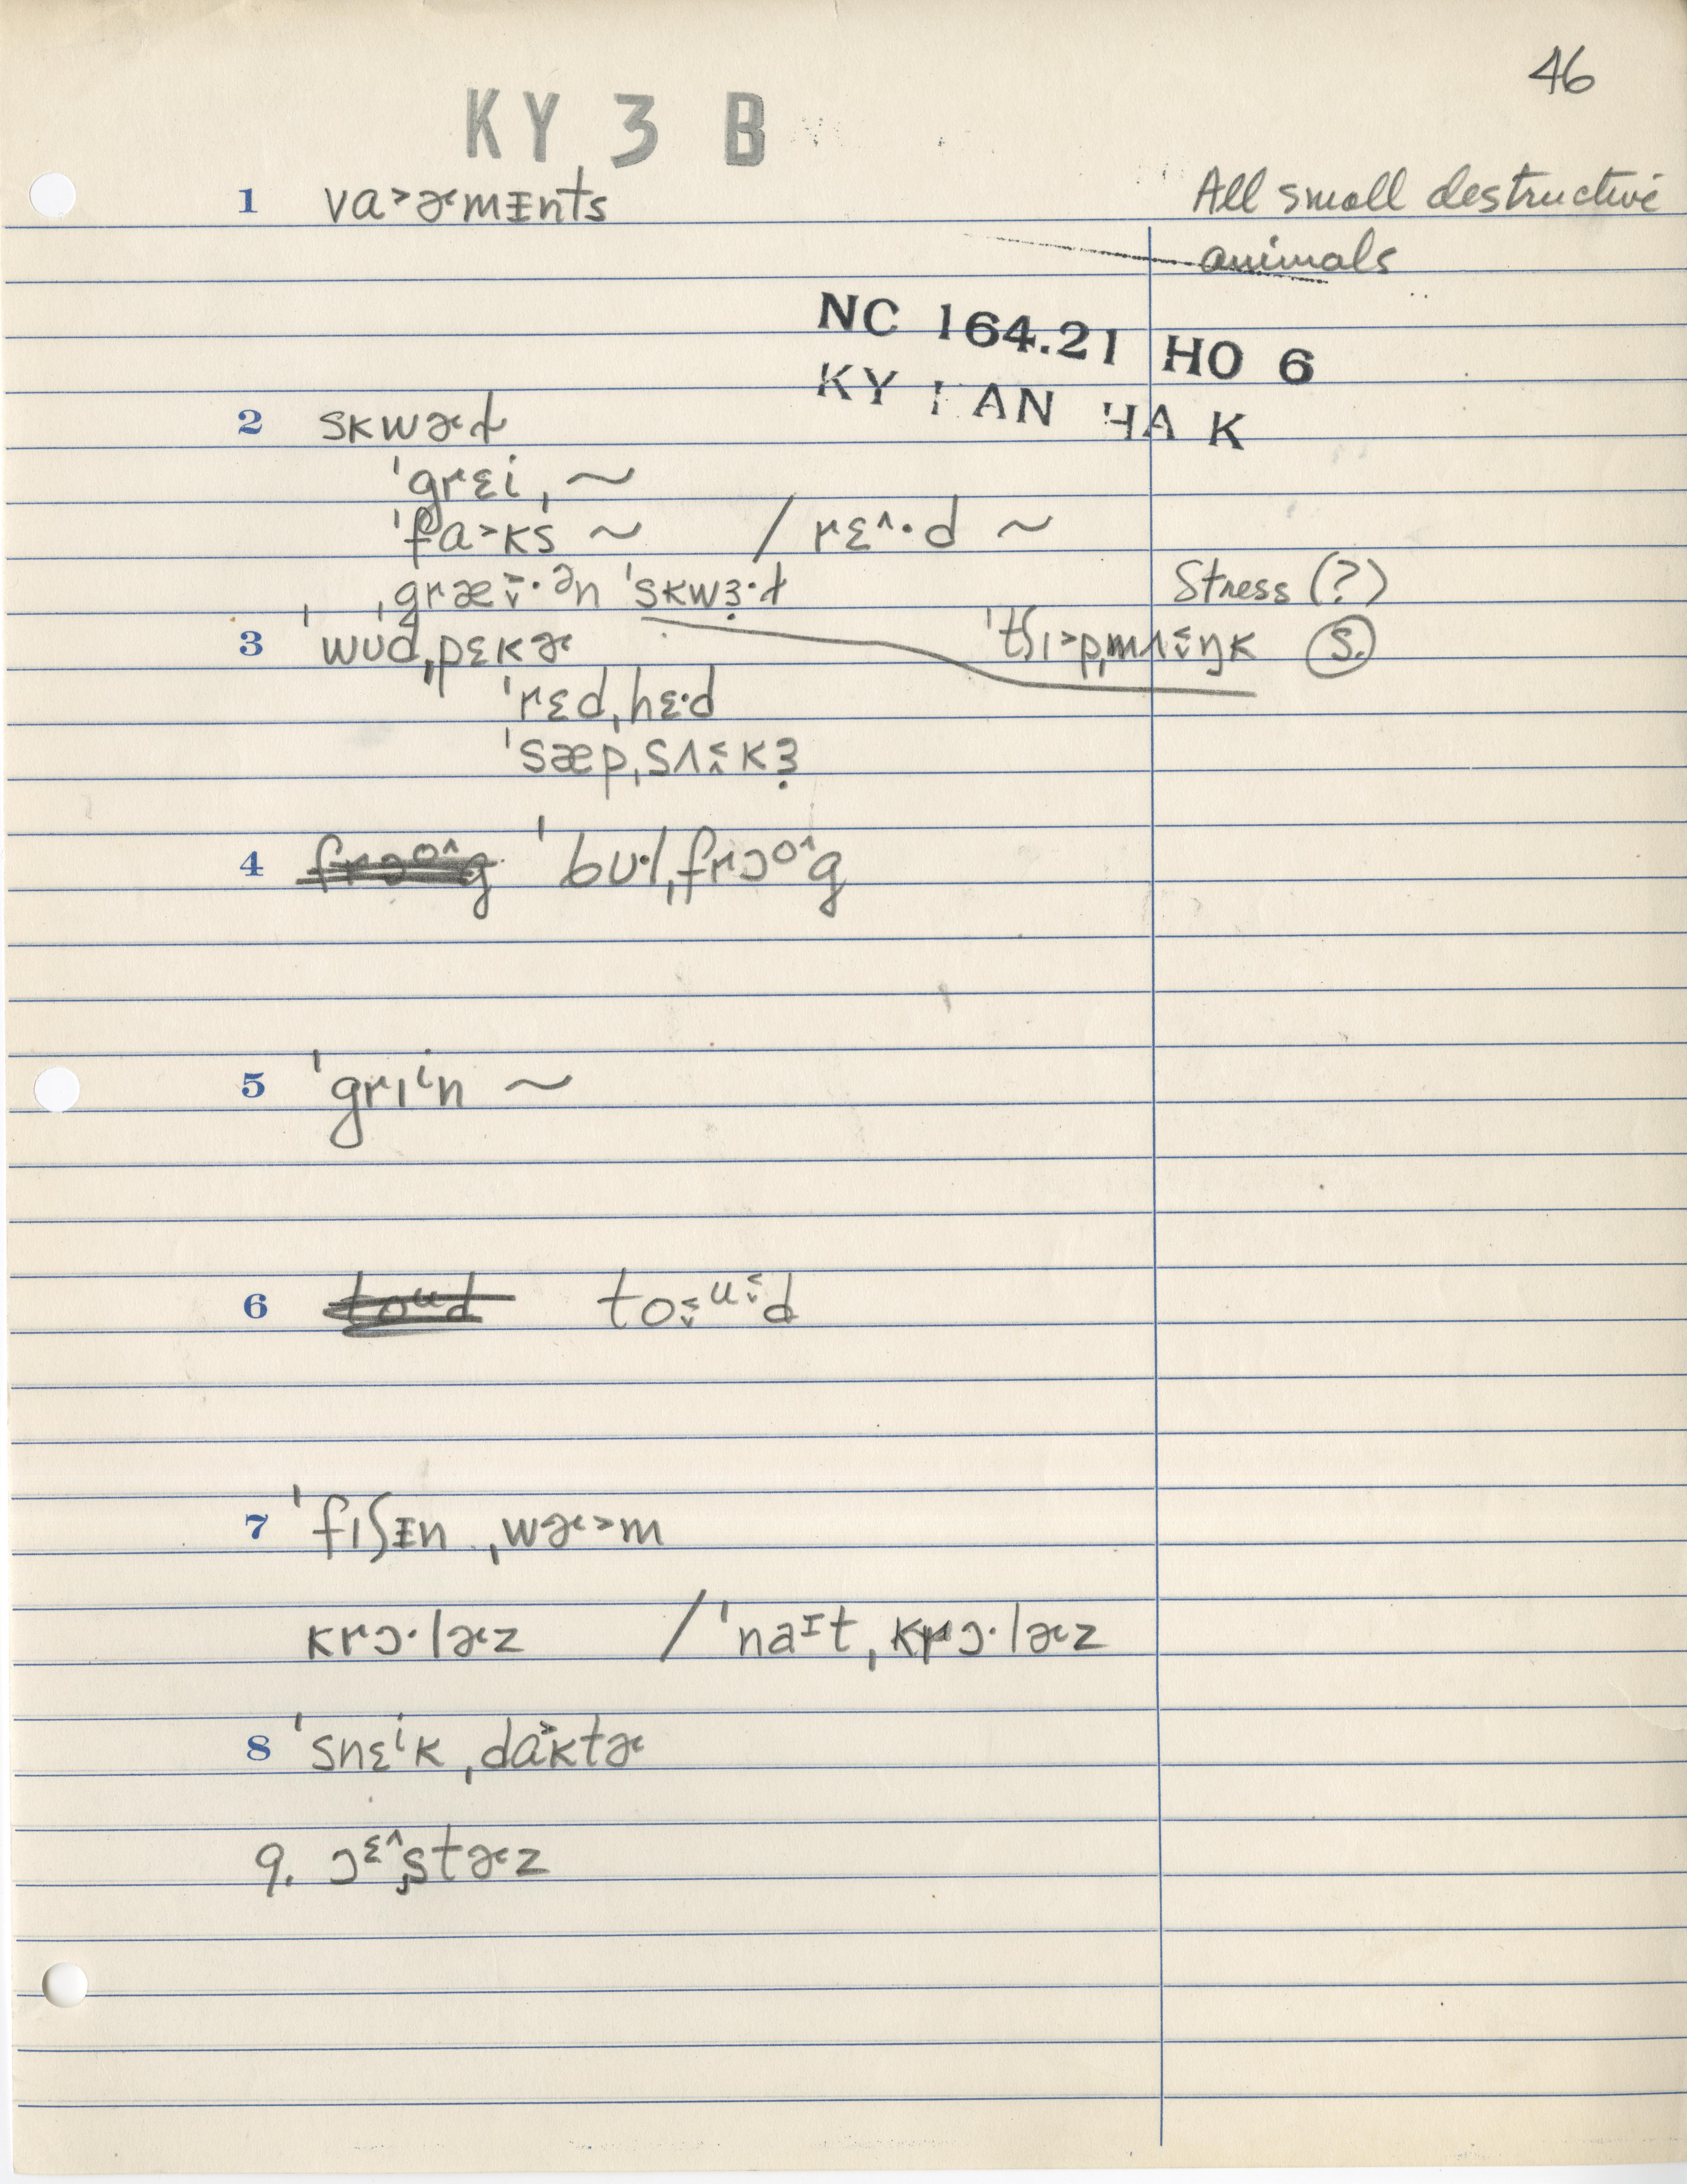 46
KY 3 B
1 vɑ˃ɚmᵻnts All small destructive
animals
NC 164.21 HO 6
KY 1 AN HA K
2 skwɚɫ
ˈgrɛiˌ ~
ˈfɑ˃ks ~ / rɛ^·d ~
ˌgræ̌˃·ᵊn ˈskwɜ̣·ɫ Stress (?)
3 ˈwʊdˌpɛkɚ ˈtʃɪ˃pˌmʌ˂ŋk Ⓢ.
ˈrɛdˌhɛ·d
ˈsæpˌsʌ˂kɜ̣
4 ~~frɔᵒ^g~~ ˈbʊ·lˌfrɔᵒ^g
5 ˈgrɪⁱn ~
6 ~~toᵘd~~ to˂ᵘ˂d
7 ˈfɪʃᵻn ˌwɚ˃m
krɔ·lɚz / ˈnaᶦt ˌkrɔ·lɚz
8 ˈsnɛⁱk ˌdɑ˃ktɚ
9. ɔᵋ^ˌstɚz